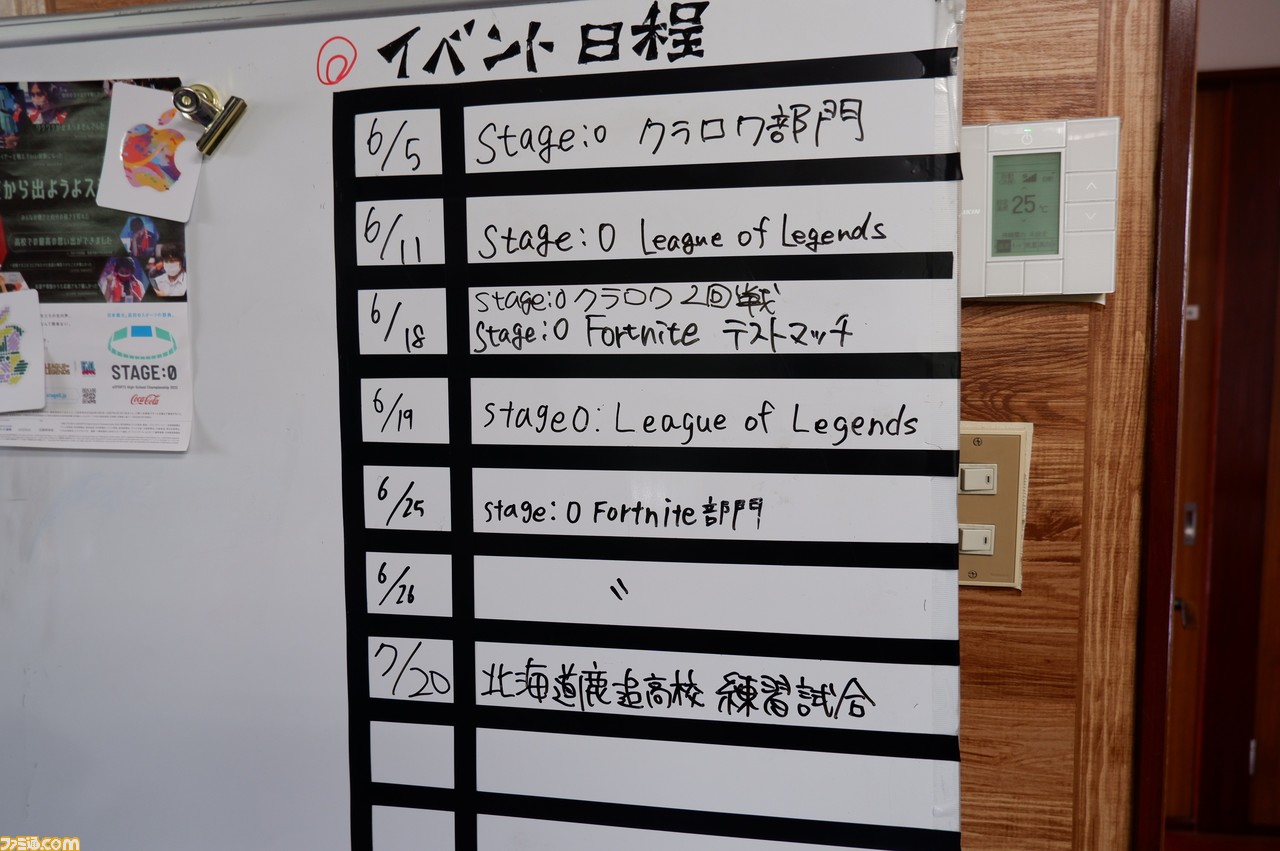 イベント日程
6/5
Stage:0 クラロワ部門
6/11
Stage:0 League of Legends
6/18
Stage:0 クラロワ 2回戦
Stage:0 Fortnite テストマッチ
6/19
Stage0: League of Legends
6/25
Stage:0 Fortnite部門
6/26
〃
7/20
北海道鹿追高校 練習試合
から出ようよス
高校での最高の思い出ができました
STAGE:0
Coca-Cola
25℃
ファミ通.com